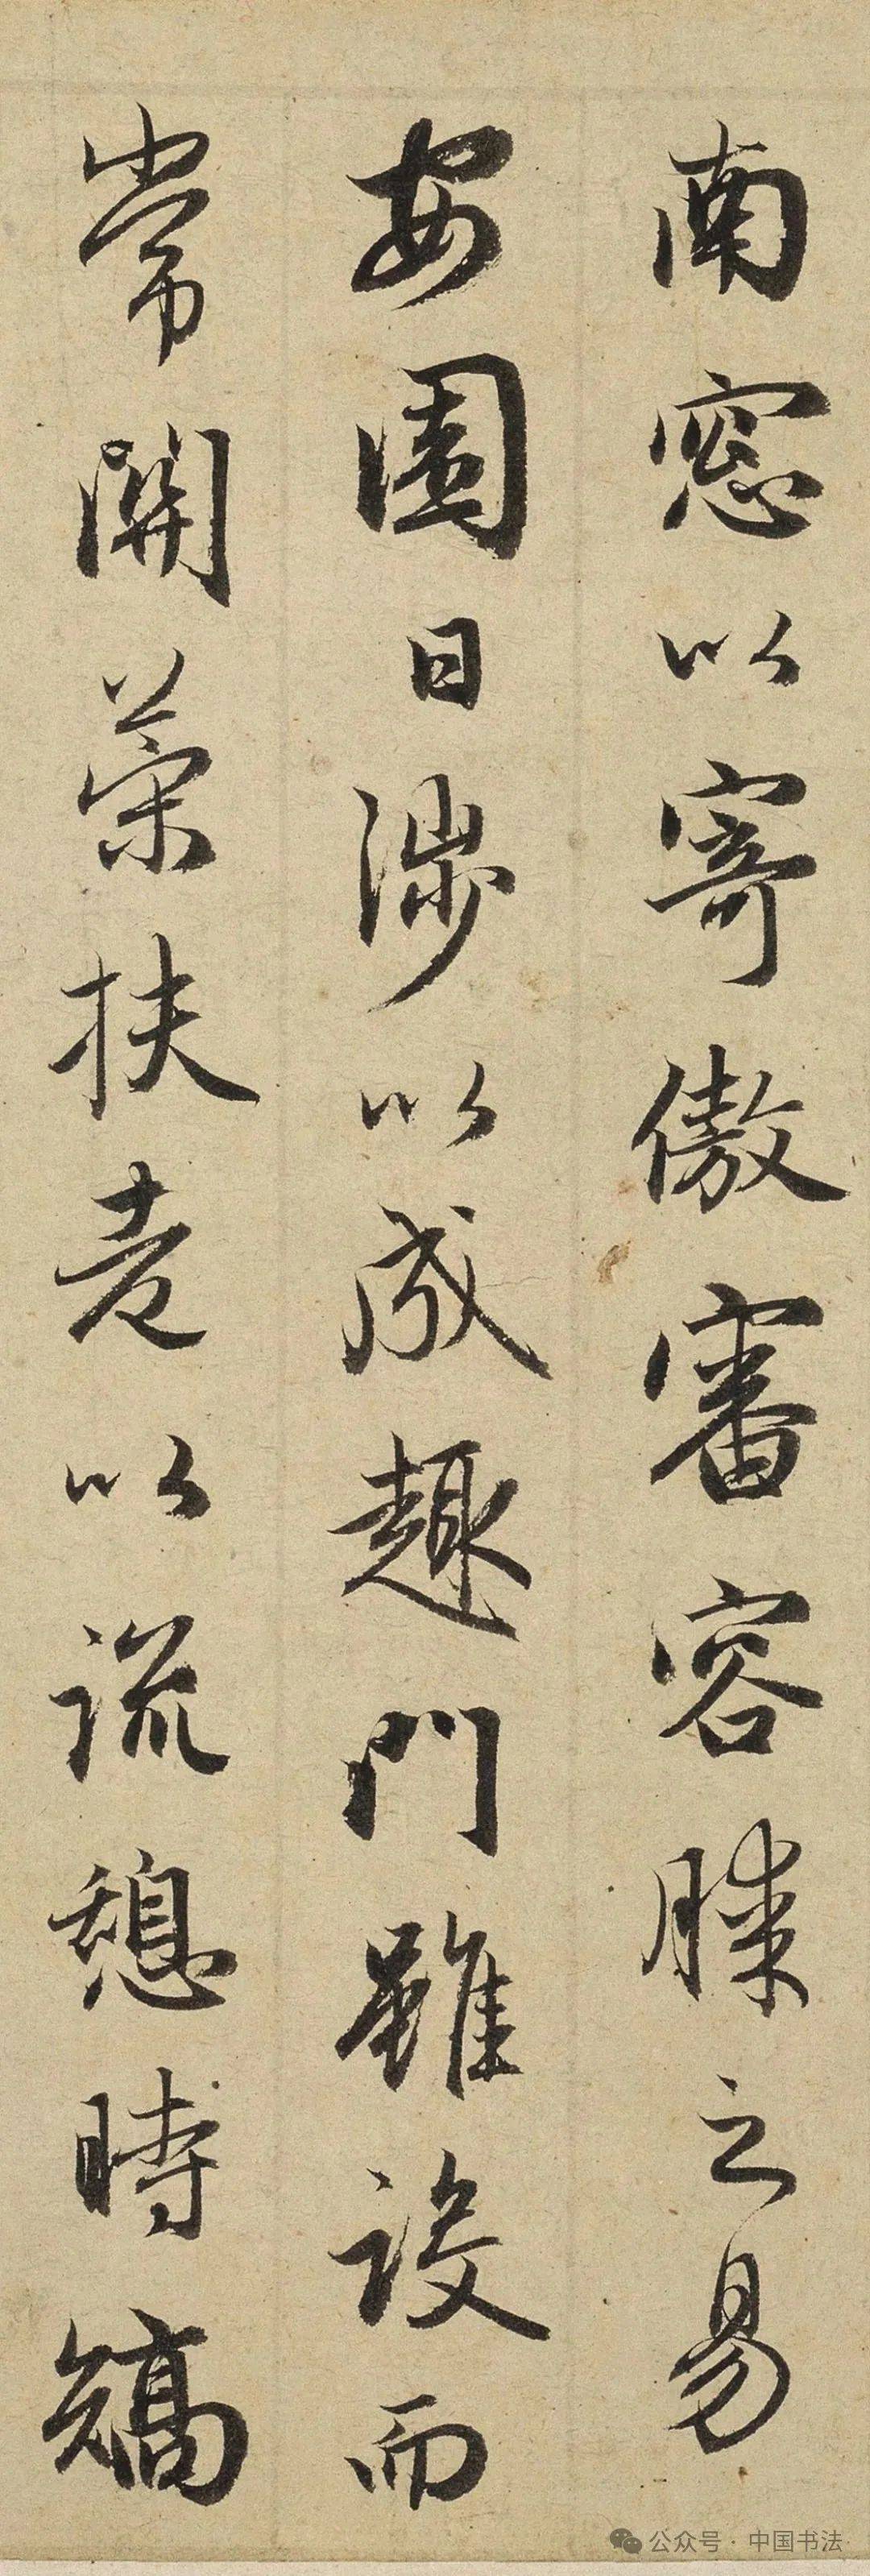 南窓以寄傲審容膝之易
安園日涉以成趣門雖設而
常關策扶老以流憩時矯
公众号·中国书法